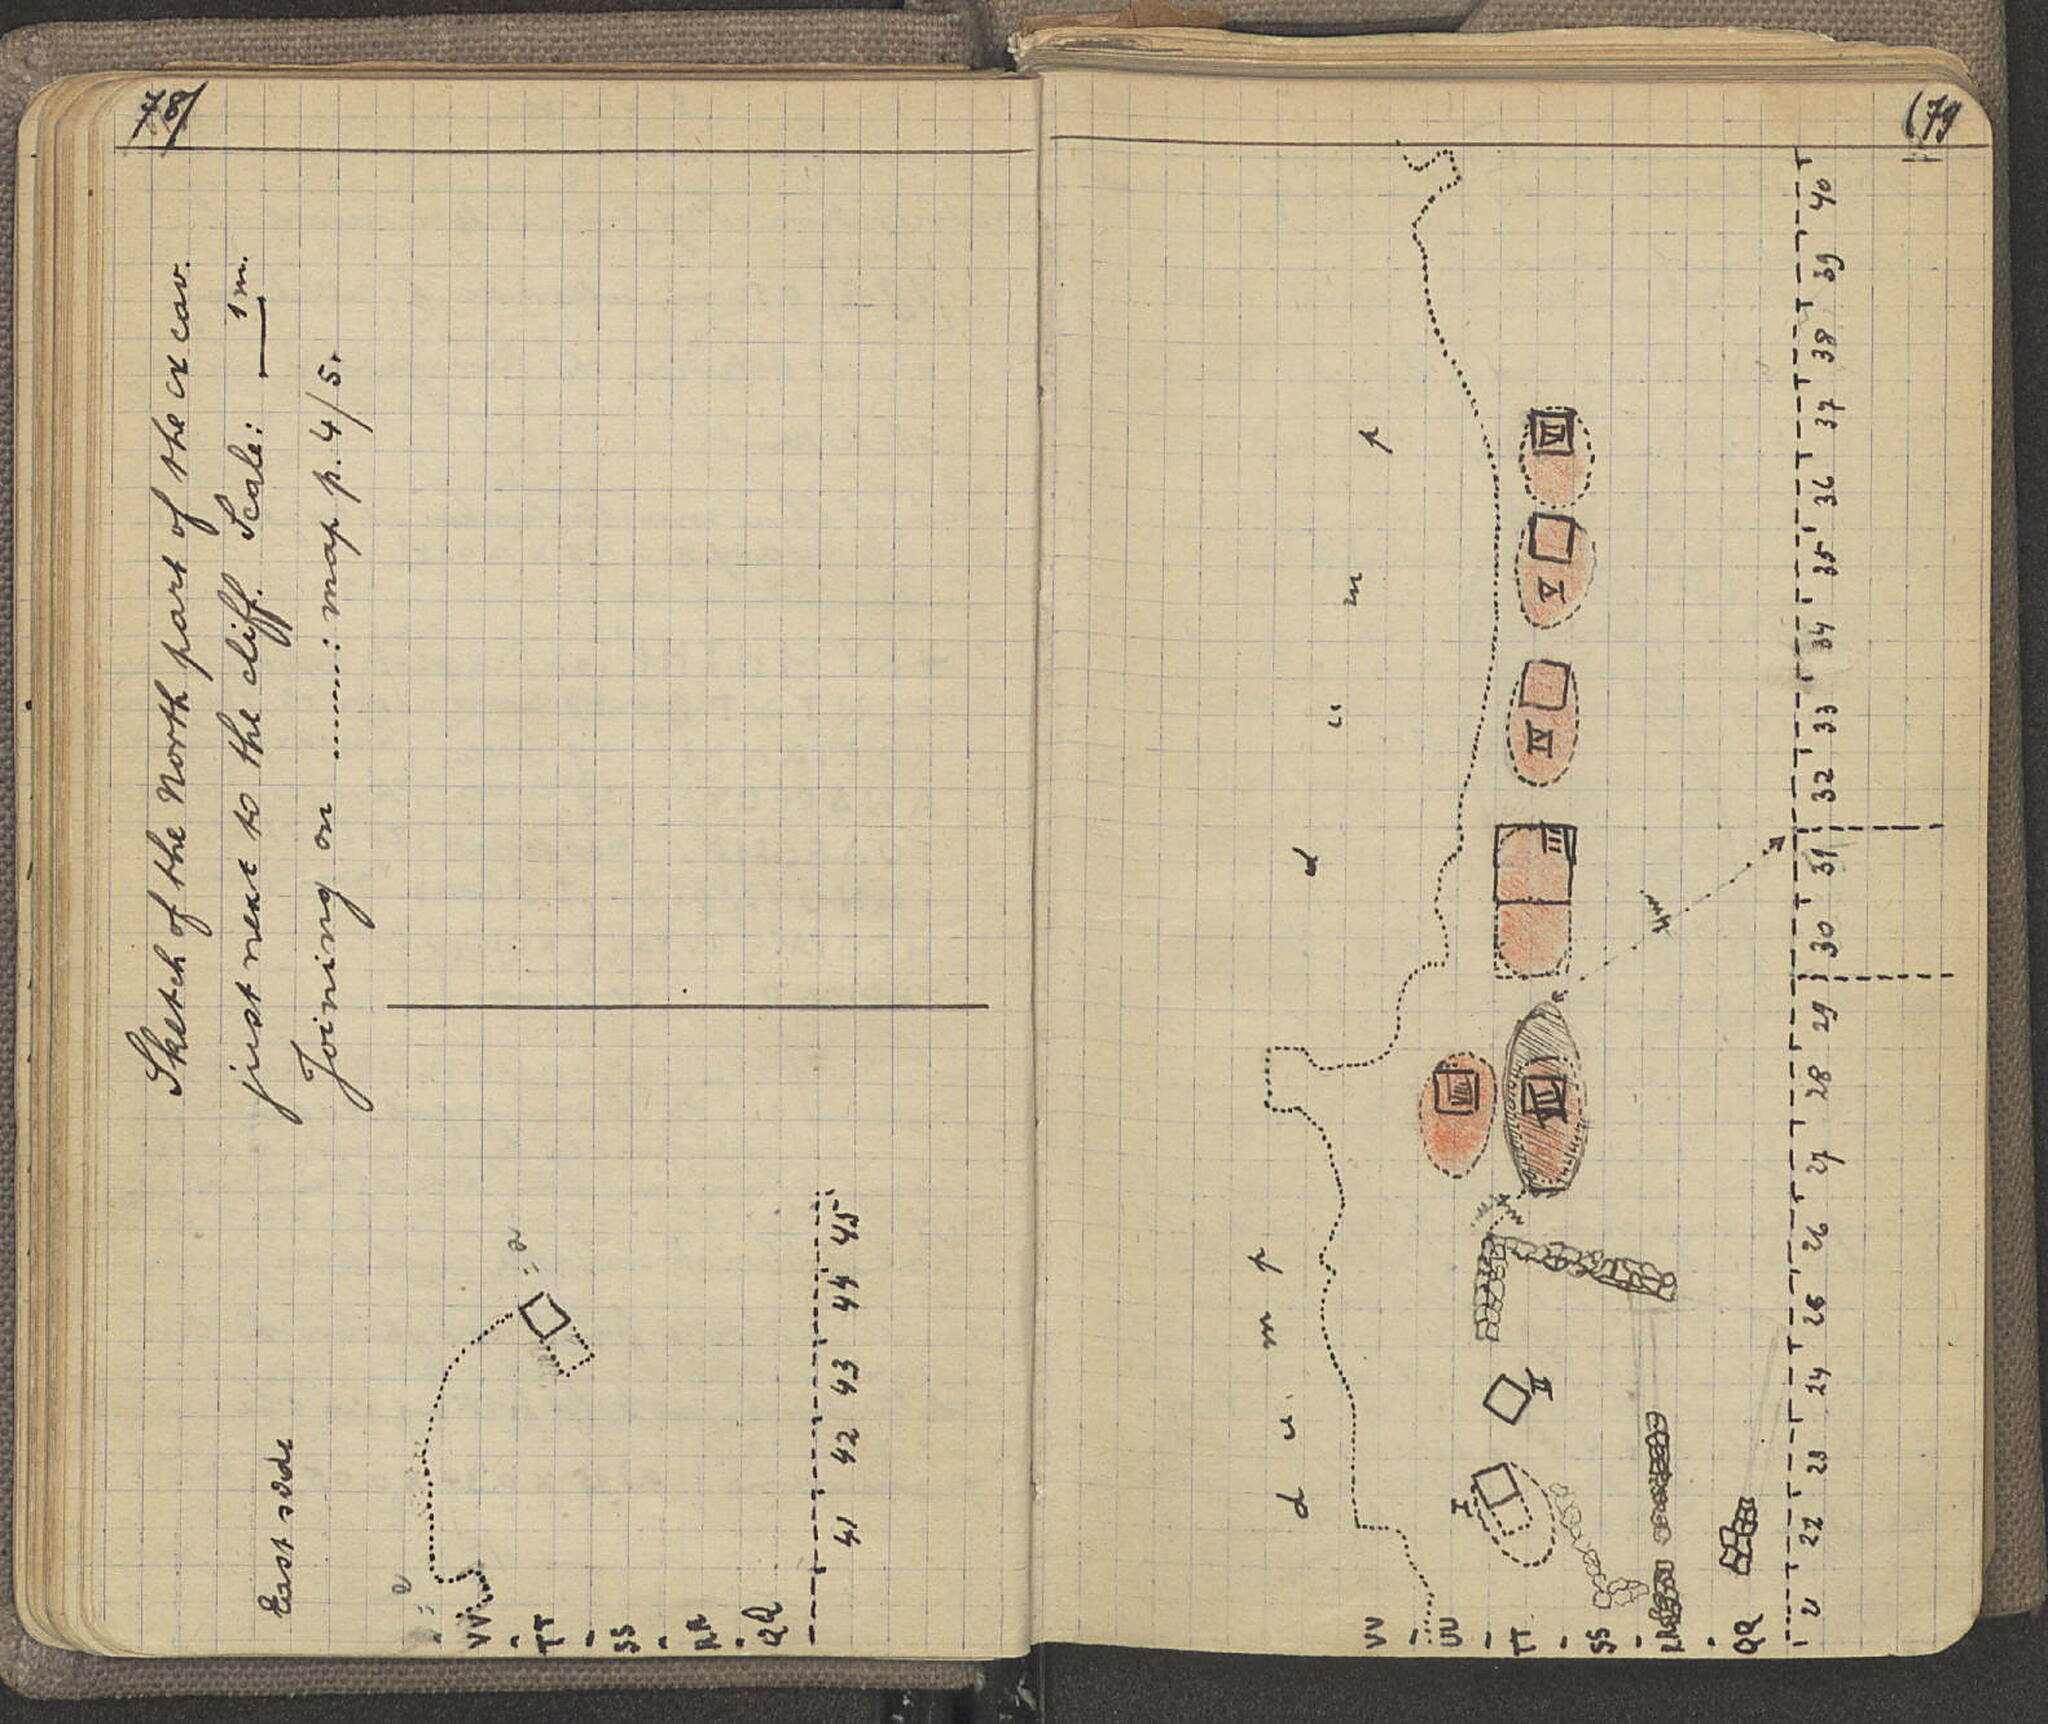 78
Sketch of the North part of the excav.
just next to the cliff. Scale: 1 m.
Joining on ........: map p. 4/5.
East side
VV
TT
SS
RR
QQ
41 42 43 44 45
79
d u m p
d u m p
I
II
III
IV
V
VI
VII
VV
UU
TT
SS
RR
QQ
21 22 23 24 25 26 27 28 29 30 31 32 33 34 35 36 37 38 39 40